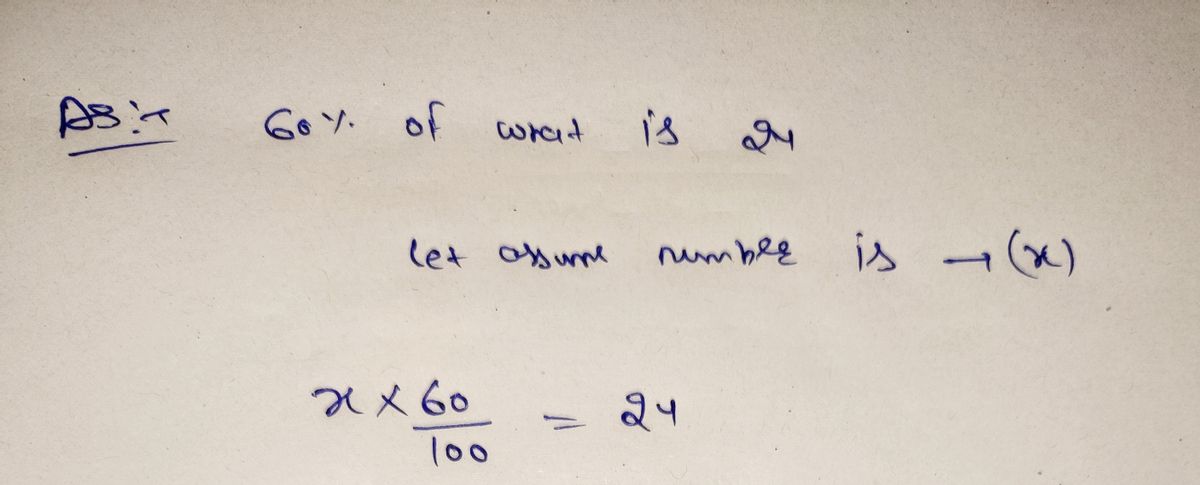 AS:- 60% of what is 24
let assume number is → (x)
x × 60/100 = 24